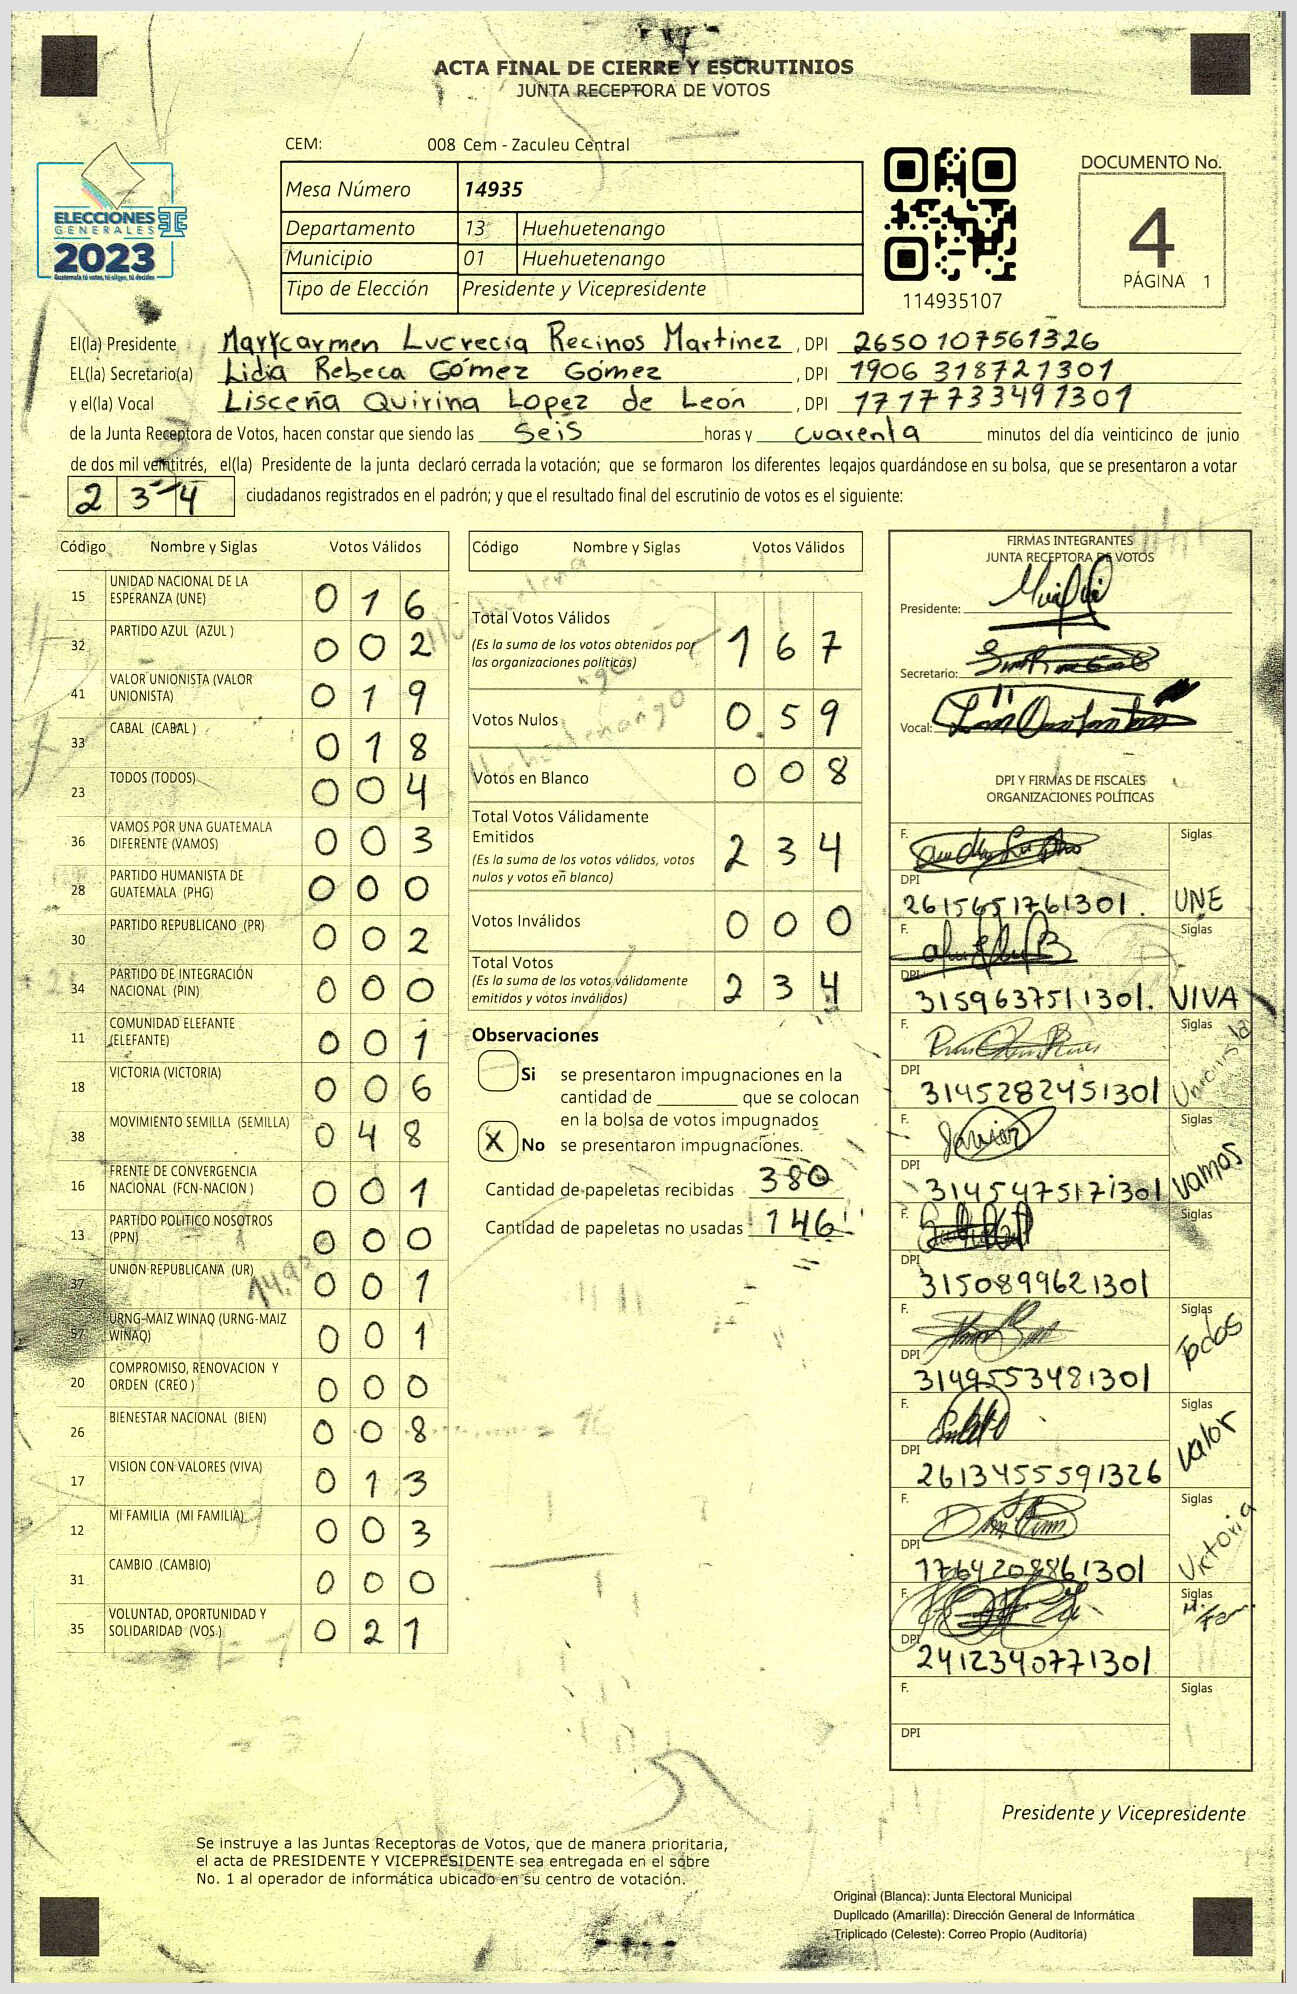 ACTA FINAL DE CIERRE Y ESCRUTINIOS
JUNTA RECEPTORA DE VOTOS
CEM: 008 Cem - Zaculeu Central
Mesa Número 14935
Departamento 13 Huehuetenango
Municipio 01 Huehuetenango
Tipo de Elección Presidente y Vicepresidente
ELECCIONES
GENERALES
2023
Guatemala tú votas, tú eliges, tú decides
114935107
DOCUMENTO No.
4
PÁGINA 1
El(la) Presidente Marycarmen Lucrecia Recinos Martínez , DPI 2650 107561326
EL(la) Secretario(a) Lidia Rebeca Gómez Gómez , DPI 1906 318721301
y el(la) Vocal Lisceña Quirina Lopez de León , DPI 1717733491301
de la Junta Receptora de Votos, hacen constar que siendo las seis horas y cuarenta minutos del día veinticinco de junio
de dos mil veintitrés, el(la) Presidente de la junta declaró cerrada la votación; que se formaron los diferentes legajos guardándose en su bolsa, que se presentaron a votar
2 3 4 ciudadanos registrados en el padrón; y que el resultado final del escrutinio de votos es el siguiente:
Código Nombre y Siglas Votos Válidos
15 UNIDAD NACIONAL DE LA ESPERANZA (UNE) 0 1 6
32 PARTIDO AZUL (AZUL ) 0 0 2
41 VALOR UNIONISTA (VALOR UNIONISTA) 0 1 9
33 CABAL (CABAL ) 0 1 8
23 TODOS (TODOS) 0 0 4
36 VAMOS POR UNA GUATEMALA DIFERENTE (VAMOS) 0 0 3
28 PARTIDO HUMANISTA DE GUATEMALA (PHG) 0 0 0
30 PARTIDO REPUBLICANO (PR) 0 0 2
34 PARTIDO DE INTEGRACIÓN NACIONAL (PIN) 0 0 0
11 COMUNIDAD ELEFANTE (ELEFANTE) 0 0 1
18 VICTORIA (VICTORIA) 0 0 6
38 MOVIMIENTO SEMILLA (SEMILLA) 0 4 8
16 FRENTE DE CONVERGENCIA NACIONAL (FCN-NACION ) 0 0 1
13 PARTIDO POLITICO NOSOTROS (PPN) 0 0 0
37 UNION REPUBLICANA (UR) 0 0 1
57 URNG-MAIZ WINAQ (URNG-MAIZ WINAQ) 0 0 1
20 COMPROMISO, RENOVACION Y ORDEN (CREO ) 0 0 0
26 BIENESTAR NACIONAL (BIEN) 0 0 8
17 VISION CON VALORES (VIVA) 0 1 3
12 MI FAMILIA (MI FAMILIA) 0 0 3
31 CAMBIO (CAMBIO) 0 0 0
35 VOLUNTAD, OPORTUNIDAD Y SOLIDARIDAD (VOS ) 0 2 1
Código Nombre y Siglas Votos Válidos
Total Votos Válidos 1 6 7
(Es la suma de los votos obtenidos por
las organizaciones políticas)
Votos Nulos 0 5 9
Votos en Blanco 0 0 8
Total Votos Válidamente
Emitidos 2 3 4
(Es la suma de los votos válidos, votos
nulos y votos en blanco)
Votos Inválidos 0 0 0
Total Votos
(Es la suma de los votos válidamente
emitidos y votos inválidos) 2 3 4
Observaciones
Si se presentaron impugnaciones en la
cantidad de ________ que se colocan
en la bolsa de votos impugnados
X No se presentaron impugnaciones.
Cantidad de papeletas recibidas 380
Cantidad de papeletas no usadas 146
FIRMAS INTEGRANTES
JUNTA RECEPTORA DE VOTOS
Presidente:
Secretario:
Vocal:
DPI Y FIRMAS DE FISCALES
ORGANIZACIONES POLÍTICAS
F. Siglas
DPI 2615651761301. UNE
F. Siglas
DPI 3159637511301. VIVA
F. Siglas
DPI 3145282451301 Unionista
F. Siglas
DPI 3145475171301 Vamos
F. Siglas
DPI 3150899621301
F. Siglas
DPI 3149553481301 Todos
F. Siglas
DPI 2613455591326 Valor
F. Siglas
DPI 1764208861301 Victoria
F. Siglas
DPI 2412340771301
F. Siglas
DPI
Presidente y Vicepresidente
Se instruye a las Juntas Receptoras de Votos, que de manera prioritaria,
el acta de PRESIDENTE Y VICEPRESIDENTE sea entregada en el sobre
No. 1 al operador de informática ubicado en su centro de votación.
Original (Blanca): Junta Electoral Municipal
Duplicado (Amarilla): Dirección General de Informática
Triplicado (Celeste): Correo Propio (Auditoría)